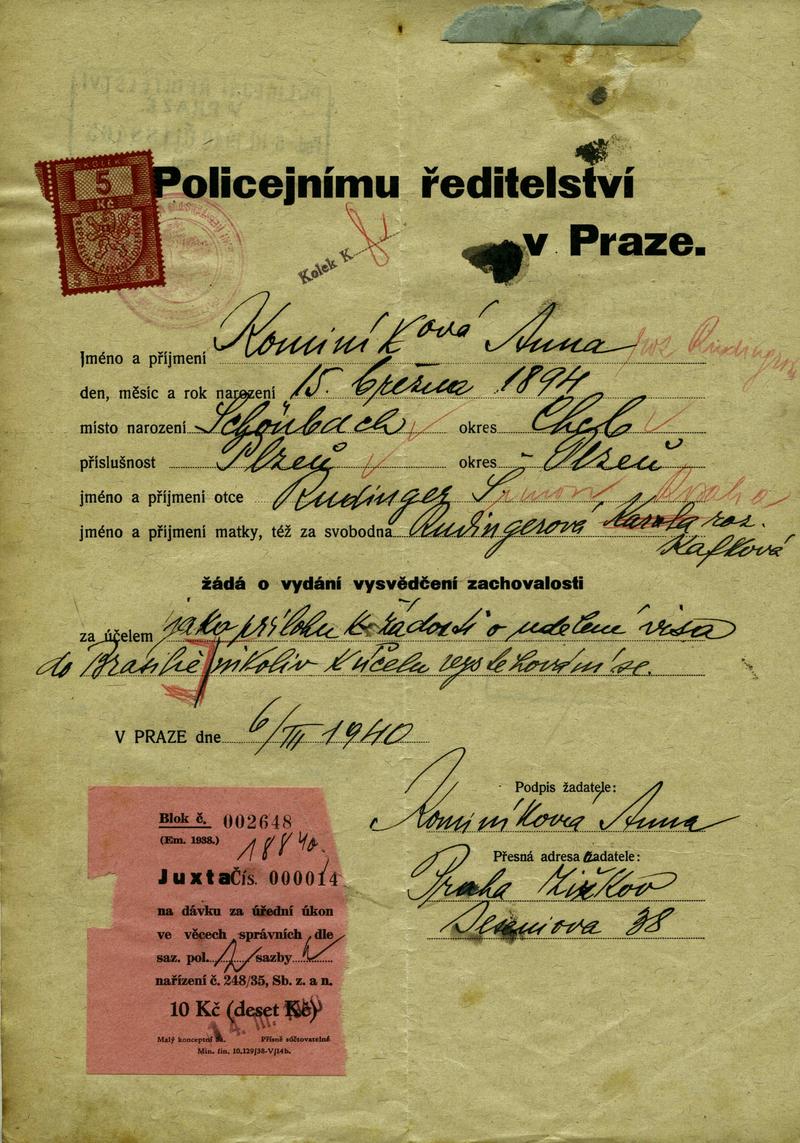 KOLEK
5
Kč
Policejnímu ředitelství
v Praze.
Kolek K 8
Jméno a příjmení Kominíková Anna roz Rudingrová
den, měsíc a rok narození 15. března 1894
místo narození Schönbach okres Cheb
příslušnost Plzeň okres Plzeň
jméno a příjmení otce Rudinger Šimon
jméno a příjmení matky, též za svobodna Rudingerová Karola roz.
Kafková
žádá o vydání vysvědčení zachovalosti
za účelem jako přílohu k žádosti o udělení visa
do Brasilie nikoliv k účelu vystehování se.
V PRAZE dne 6/III 1940
Podpis žadatele:
Kominíková Anna
Přesná adresa žadatele:
Praha Žižkov
38
Blok č. 002648
(Em. 1938.)
Juxta Čís. 000014
na dávku za úřední úkon
ve věcech správních dle
saz. pol. 2 sazby
nařízení č. 248/35, Sb. z. a n.
10 Kč (deset Kč)
14. III. 1940
Malý konceptní Přísně súčtovatelné
Min. fin. 10.129/38-V/14b.